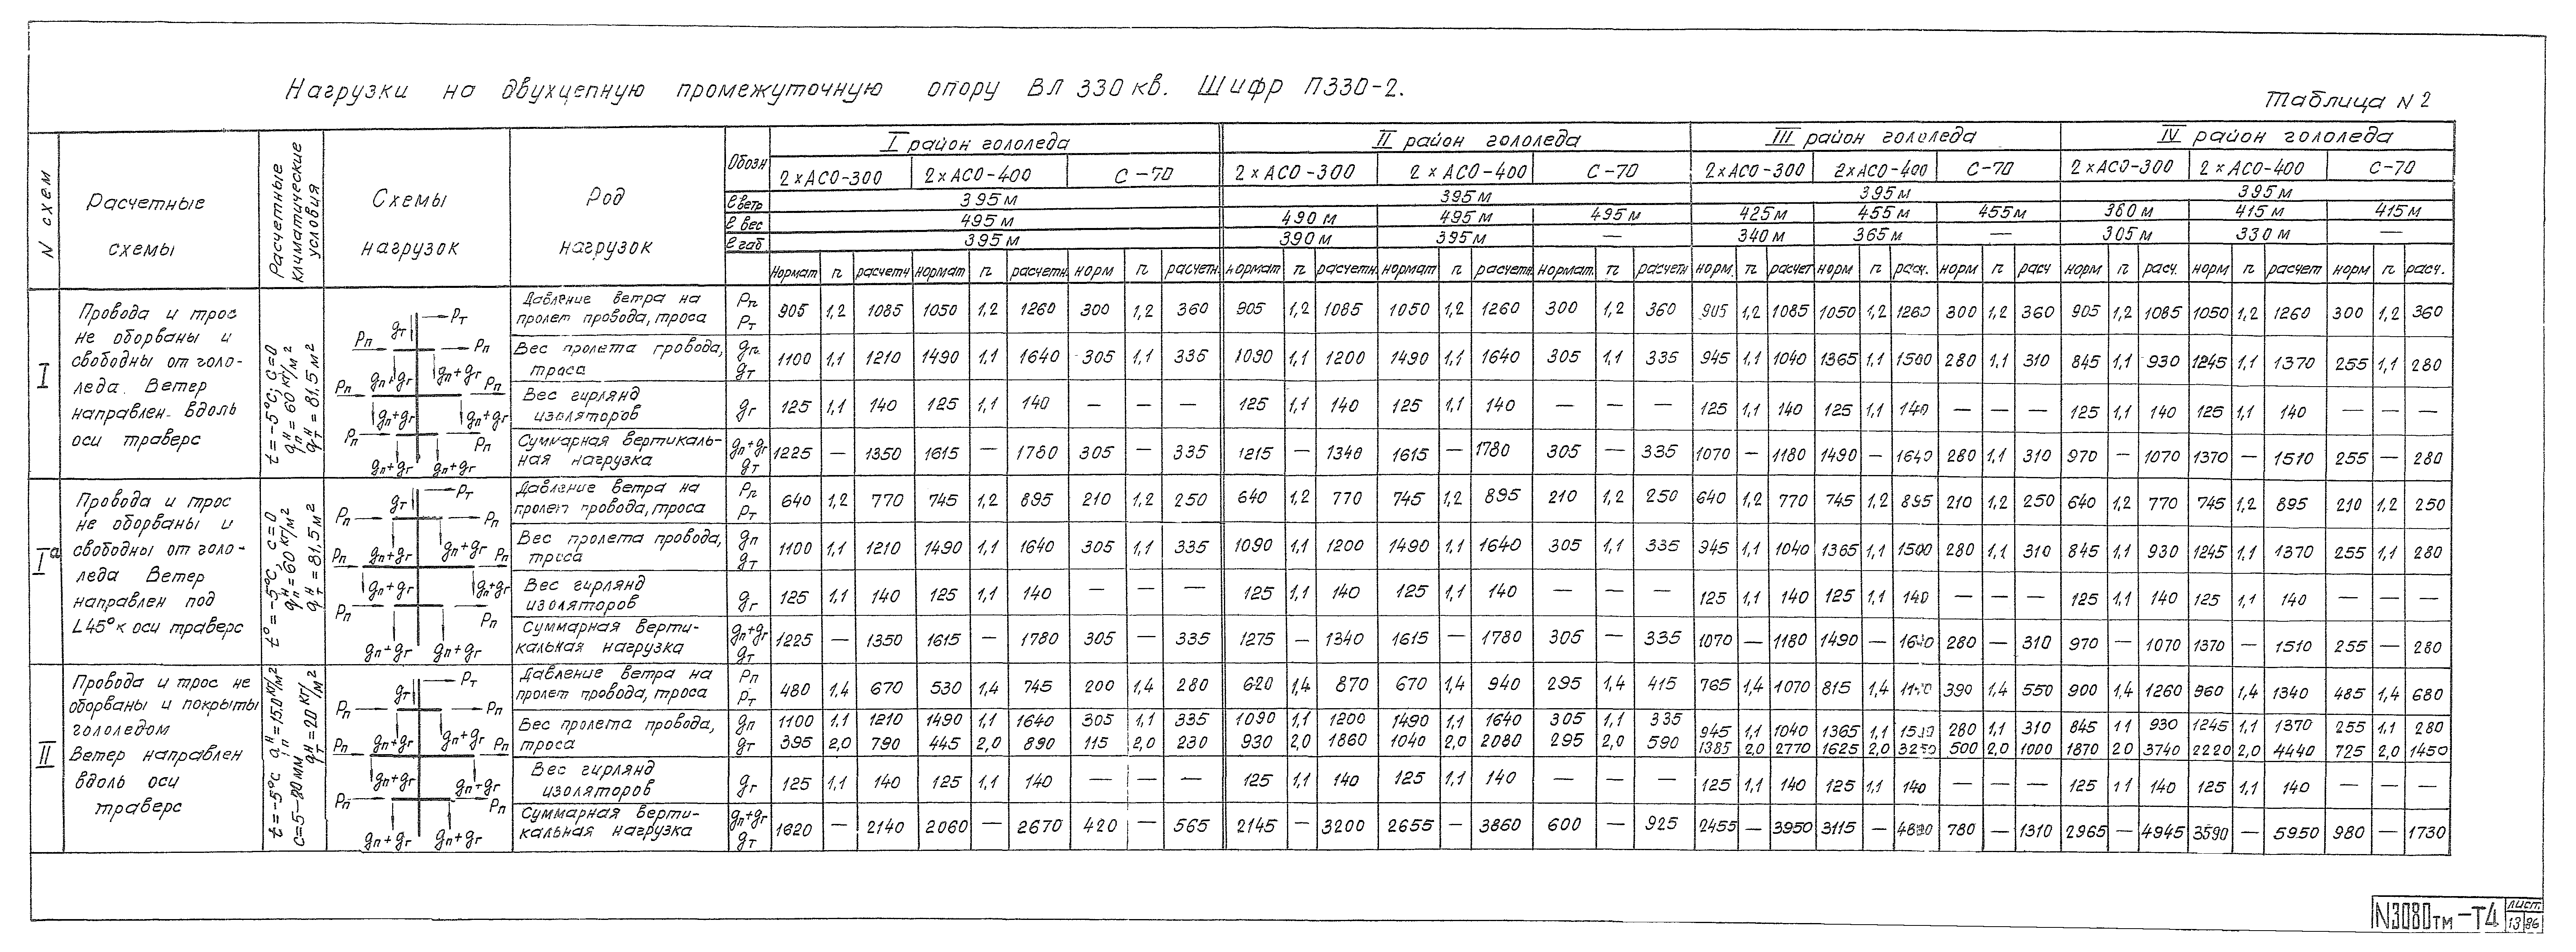 Нагрузки на двухцепную промежуточную опору ВЛ 330 кв. Шифр П330-2.
Таблица N 2
N схем
Расчетные схемы
Расчетные климатические условия
Схемы нагрузок
Род нагрузок
Обозн I район гололеда II район гололеда III район гололеда IV район гололеда
2×АСО-300 2×АСО-400 С-70 2×АСО-300 2×АСО-400 С-70 2×АСО-300 2×АСО-400 С-70 2×АСО-300 2×АСО-400 С-70
ℓ ветр 395м 395м 395м 395м
ℓ вес 495м 490м 495м 495м 425м 455м 455м 360м 415м 415м
ℓ габ 395м 390м 395м — 340м 365м — 305м 330м —
нормат n расчетн нормат n расчетн. норм n расчетн. нормат n расчетн. нормат n расчетн. нормат. n расчетн норм. n расчет норм n расч. норм n расч норм n расч. норм n расчет норм n расч.
I
Провода и трос
не оборваны и
свободны от голо-
леда. Ветер
направлен вдоль
оси траверс
t=-5°С; C=0
qпн=60кг/м²
qтн=81,5м²
gт Pт
Pп Pп
gп+gг gп+gг
Pп Pп
gп+gг gп+gг
Pп Pп
gп+gг gп+gг
Давление ветра на пролет провода, троса Pп Pт 905 1,2 1085 1050 1,2 1260 300 1,2 360 905 1,2 1085 1050 1,2 1260 300 1,2 360 905 1,2 1085 1050 1,2 1260 300 1,2 360 905 1,2 1085 1050 1,2 1260 300 1,2 360
Вес пролета провода, троса gп gт 1100 1,1 1210 1490 1,1 1640 305 1,1 335 1090 1,1 1200 1490 1,1 1640 305 1,1 335 945 1,1 1040 1365 1,1 1500 280 1,1 310 845 1,1 930 1245 1,1 1370 255 1,1 280
Вес гирлянд изоляторов gг 125 1,1 140 125 1,1 140 — — — 125 1,1 140 125 1,1 140 — — — 125 1,1 140 125 1,1 140 — — — 125 1,1 140 125 1,1 140 — — —
Суммарная вертикаль- ная нагрузка gп+gг gт 1225 — 1350 1615 — 1780 305 — 335 1215 — 1340 1615 — 1780 305 — 335 1070 — 1180 1490 — 1640 280 1,1 310 970 — 1070 1370 — 1510 255 — 280
Iа
Провода и трос
не оборваны и
свободны от голо-
леда Ветер
направлен под
∠45° к оси траверс
t°=-5°С, C=0
qпн=60кг/м²
qтн=81,5м²
gт Pт
Pп Pп
gп+gг gп+gг
Pп Pп
gп+gг gп+gг
Pп Pп
gп+gг gп+gг
Давление ветра на пролет провода, троса Pп Pт 640 1,2 770 745 1,2 895 210 1,2 250 640 1,2 770 745 1,2 895 210 1,2 250 640 1,2 770 745 1,2 895 210 1,2 250 640 1,2 770 745 1,2 895 210 1,2 250
Вес пролета провода, троса gп gт 1100 1,1 1210 1490 1,1 1640 305 1,1 335 1090 1,1 1200 1490 1,1 1640 305 1,1 335 945 1,1 1040 1365 1,1 1500 280 1,1 310 845 1,1 930 1245 1,1 1370 255 1,1 280
Вес гирлянд изоляторов gг 125 1,1 140 125 1,1 140 — — — 125 1,1 140 125 1,1 140 — — — 125 1,1 140 125 1,1 140 — — — 125 1,1 140 125 1,1 140 — — —
Суммарная верти- кальная нагрузка gп+gг gт 1225 — 1350 1615 — 1780 305 — 335 1275 — 1340 1615 — 1780 305 — 335 1070 — 1180 1490 — 1640 280 — 310 970 — 1070 1370 — 1510 255 — 280
II
Провода и трос не
оборваны и покрыты
гололедом
Ветер направлен
вдоль оси
траверс
t=-5°С qпн=15.0кг/м²
C=5-20мм qтн=20кг/м²
gт Pт
Pп Pп
gп+gг gп+gг
Pп Pп
gп+gг gп+gг
Pп Pп
gп+gг gп+gг
Давление ветра на пролет провода, троса Pп Pт 480 1,4 670 530 1,4 745 200 1,4 280 620 1,4 870 670 1,4 940 295 1,4 415 765 1,4 1070 815 1,4 390 1,4 550 900 1,4 1260 960 1,4 1340 485 1,4 680
Вес пролета провода, gп 1100 1,1 1210 1490 1,1 1640 305 1,1 335 1090 1,1 1200 1490 1,1 1640 305 1,1 335 945 1,1 1040 1365 1,1 1500 280 1,1 310 845 11 930 1245 1,1 1370 255 1,1 280
троса gт 395 2,0 790 445 2,0 890 115 2,0 230 930 2,0 1860 1040 2,0 2080 295 2,0 590 1385 2,0 2770 1625 2,0 3250 500 2,0 1000 1870 20 3740 2220 2,0 4440 725 2,0 1450
Вес гирлянд изоляторов gг 125 1,1 140 125 1,1 140 — — — 125 1,1 140 125 1,1 140 — — — 125 1,1 140 125 1,1 140 — — — 125 11 140 125 1,1 140 — — —
Суммарная верти- кальная нагрузка gп+gг gт 1620 — 2140 2060 — 2670 420 — 565 2145 — 3200 2655 — 3860 600 — 925 2455 — 3950 3115 — 780 — 1310 2965 — 4945 3590 — 5950 980 — 1730
N3080тм-Т4 лист.
13 86